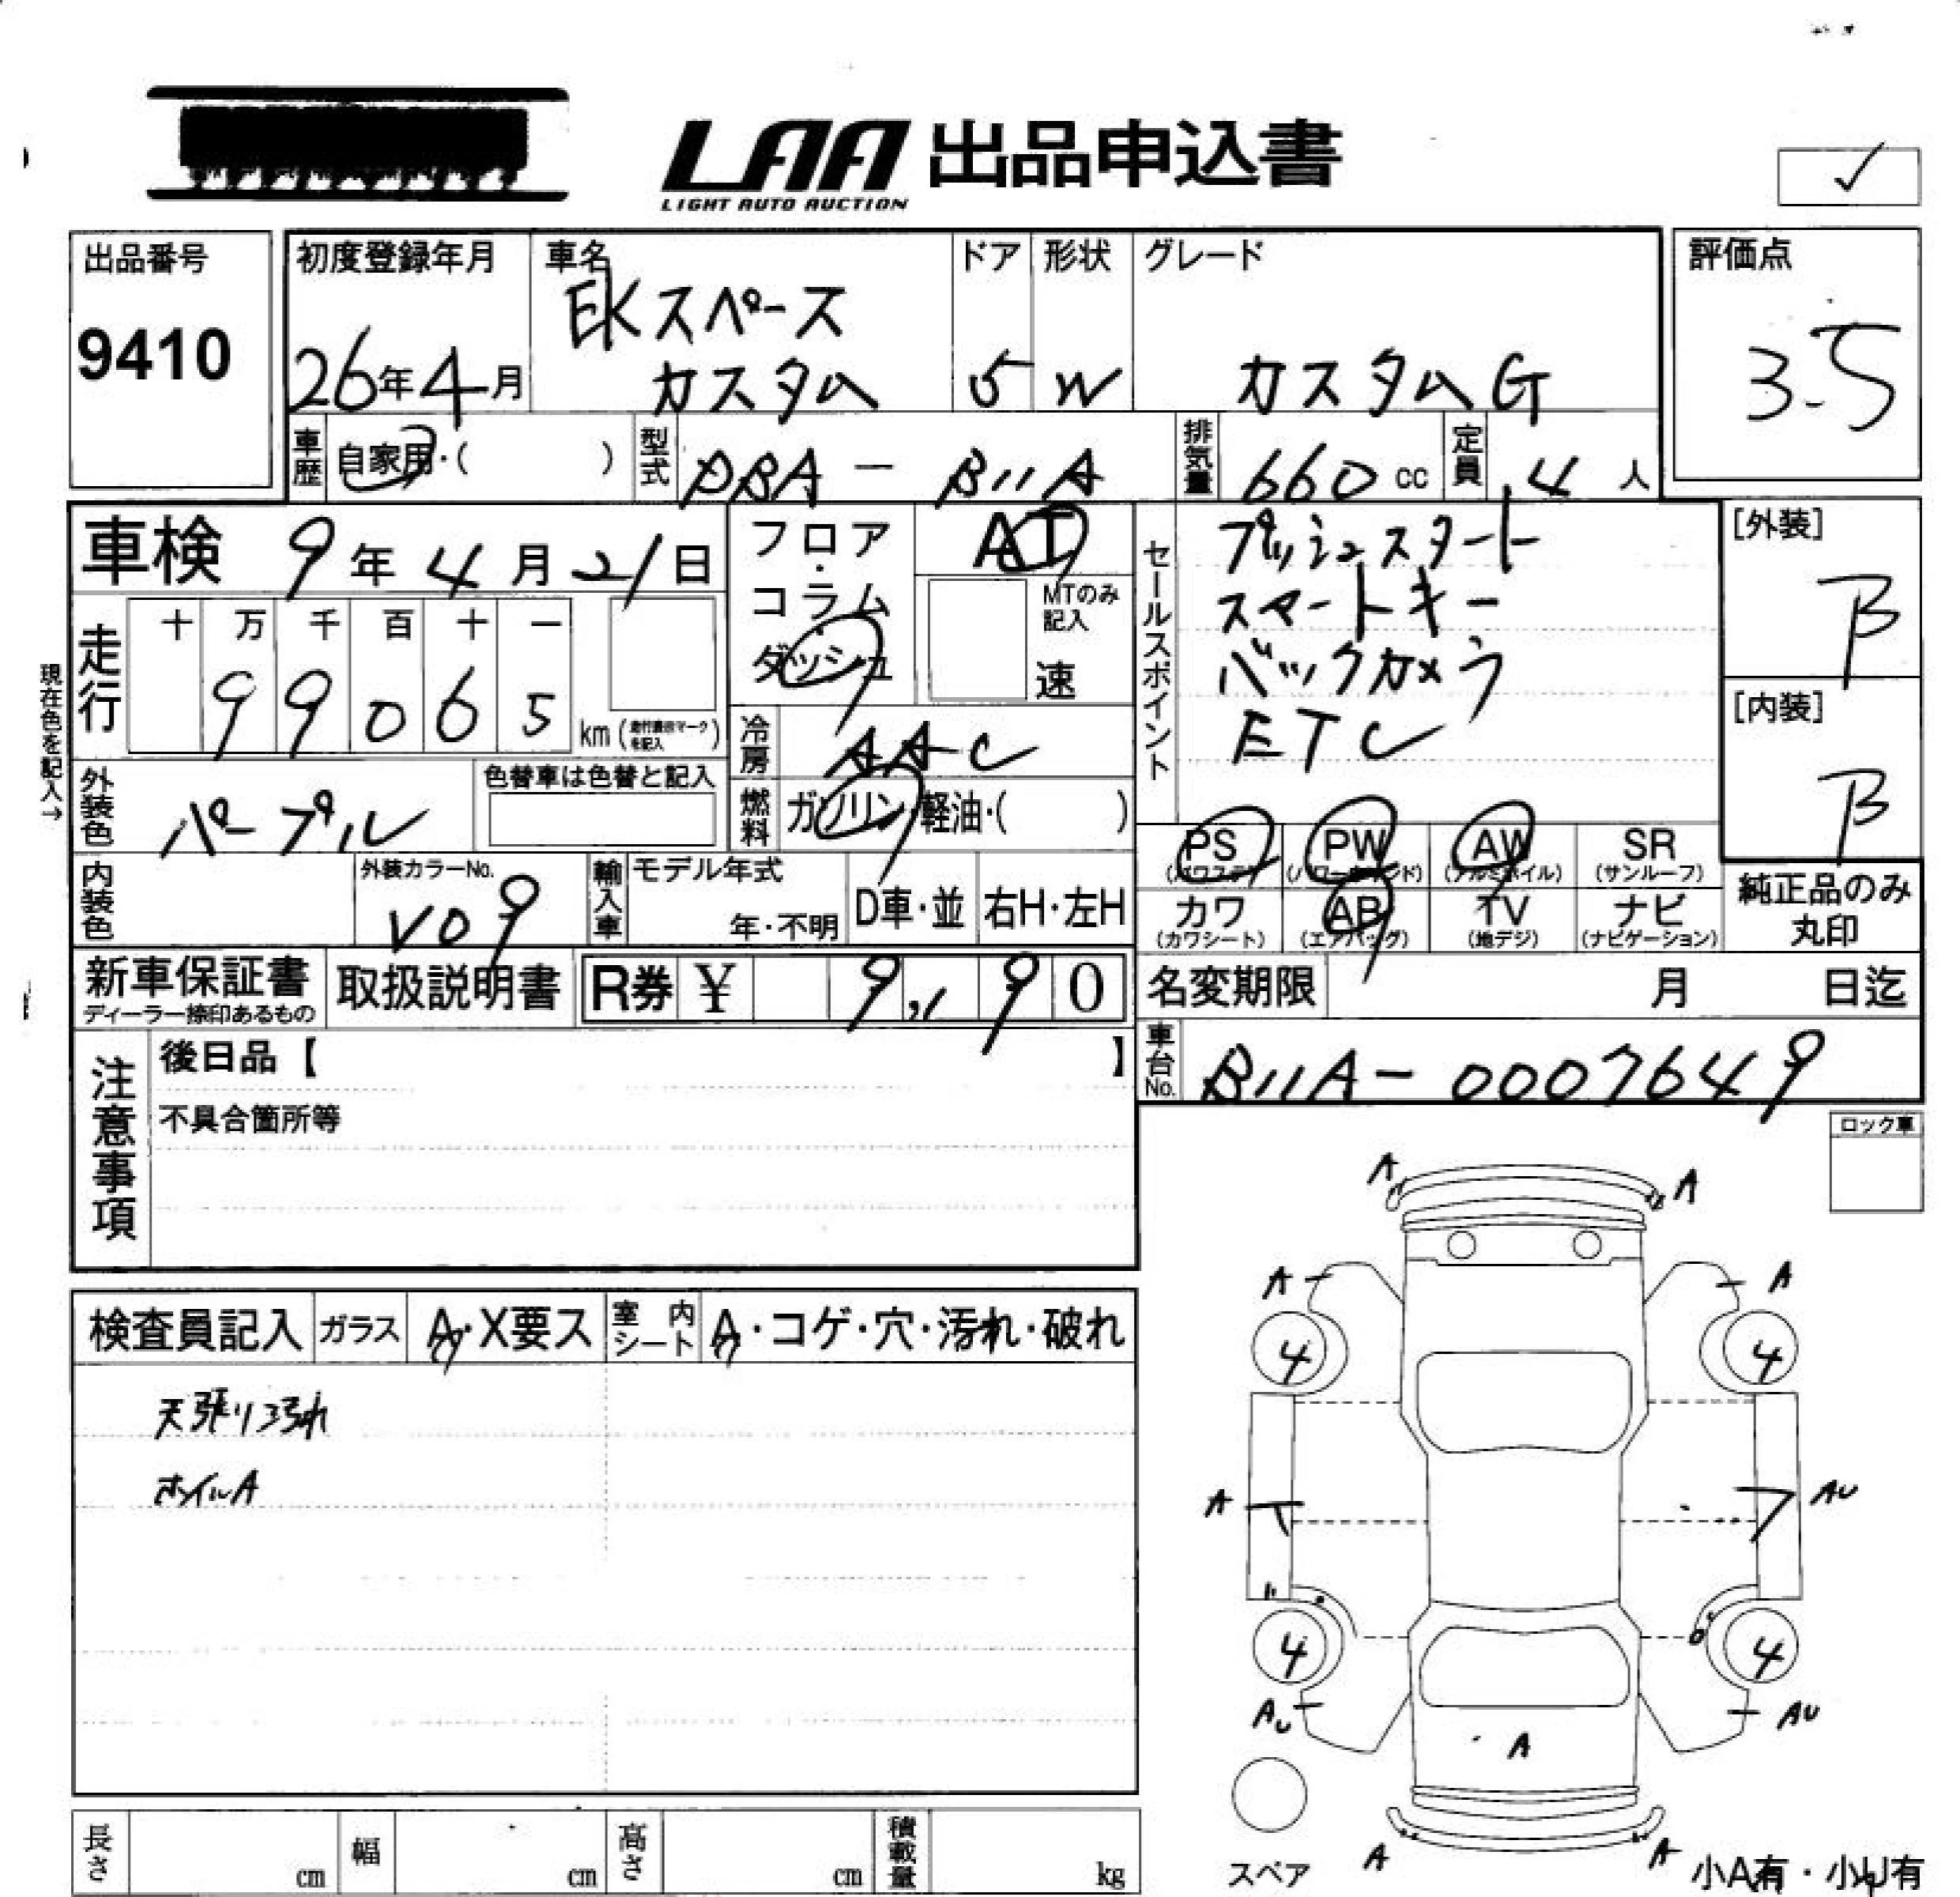 LAA 出品申込書
LIGHT AUTO AUCTION
✓
出品番号
9410
初度登録年月
26年4月
車名
EKスペース
カスタム
ドア
5
形状
W
グレード
カスタムG
評価点
3.5
車歴
自家用・( )
型式
DBA-B11A
排気量
660cc
定員
4人
車検 9年4月21日
フロア・コラム・ダッシュ
AT
MTのみ記入
速
セールスポイント
プッシュスタート
スマートキー
バックカメラ
ETC
[外装]
B
[内装]
B
現在色を記入→
走行
十 万 千 百 十 一
9 9 0 6 5 km
冷房
AAC
外装色
パープル
色替車は色替と記入
燃料
ガソリン・軽油・( )
PS
(パワステ)
PW
(パワーウインド)
AW
(アルミホイル)
SR
(サンルーフ)
カワ
(カワシート)
AB
(エアバッグ)
TV
(地デジ)
ナビ
(ナビゲーション)
純正品のみ
丸印
内装色
外装カラーNo.
V09
輸入車
モデル年式
年・不明
D車・並
右H・左H
新車保証書
ディーラー捺印あるもの
取扱説明書
R券 ¥ 9,190
名変期限 月 日迄
車台No.
B11A-0007649
注意事項
後日品【 】
不具合箇所等
ロック車
検査員記入
ガラス
A・X要ス
室内シート
A・コゲ・穴・汚れ・破れ
天張り汚れ
ホイルA
A A
A A
4 4
A AU
4 4
AU AU
A
A A
スペア
小A有・小U有
長さ cm
幅 cm
高さ cm
積載量 kg